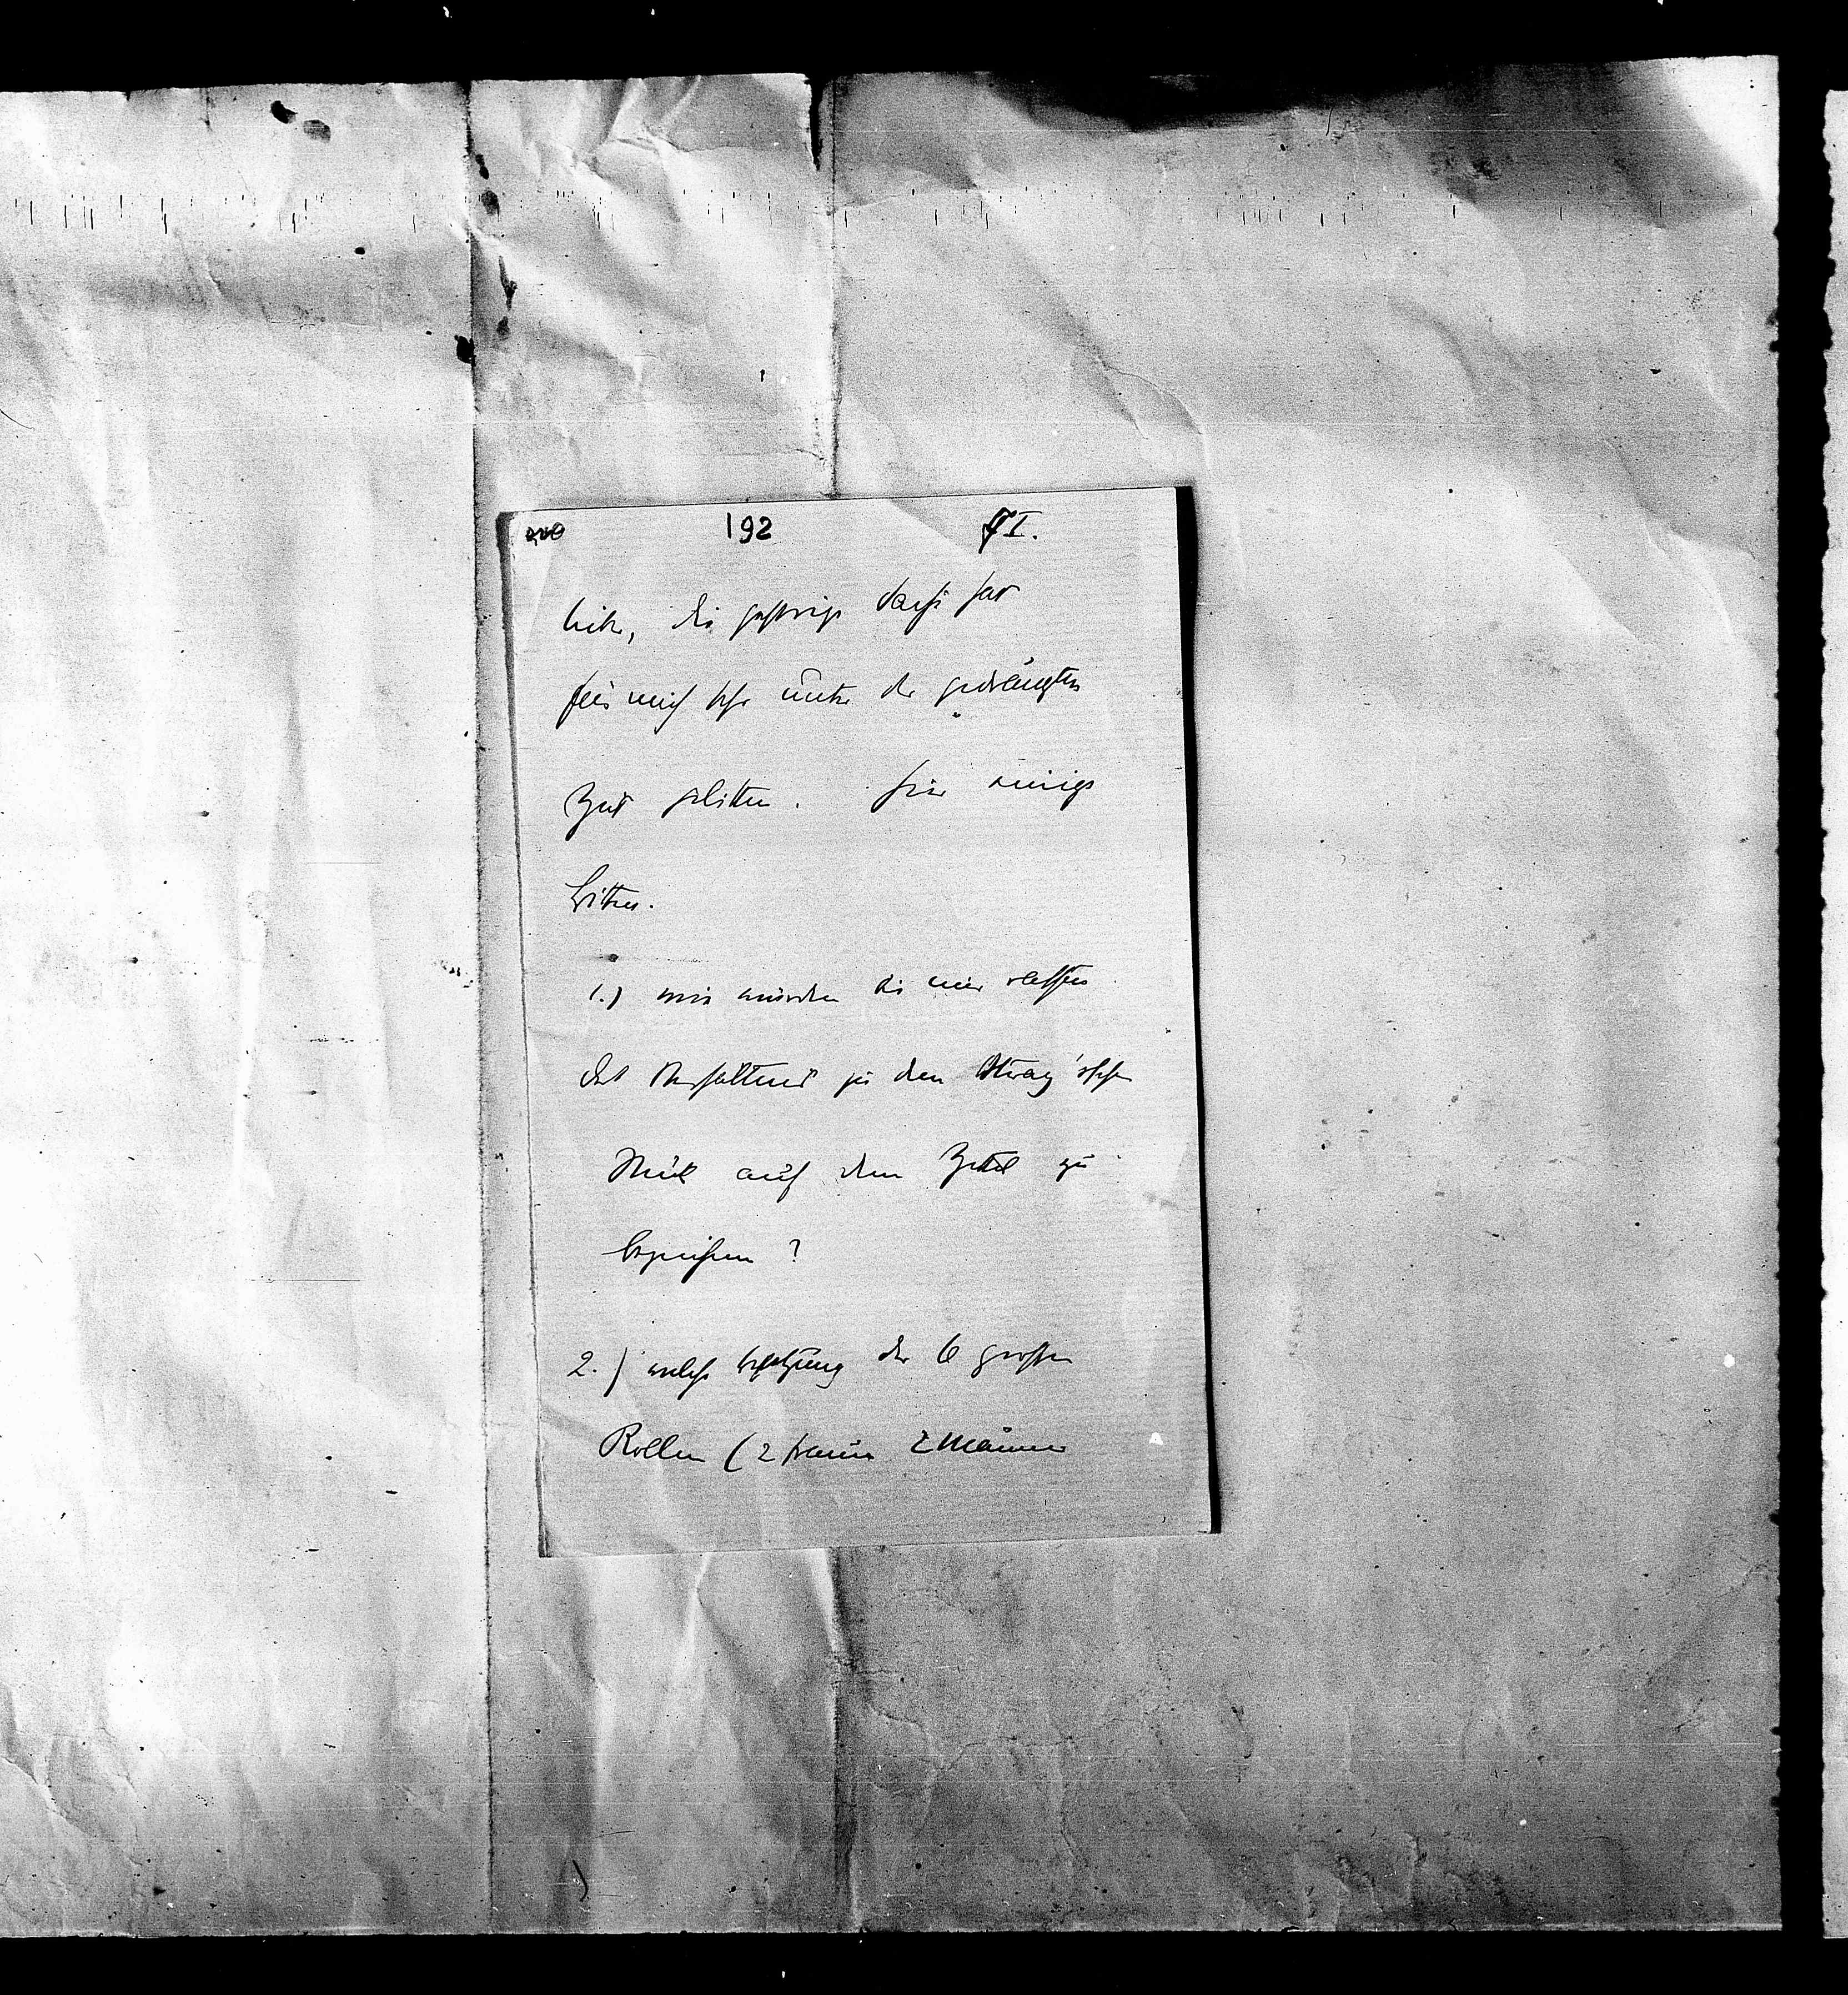 192 VI.
leider, die gestrige Sache hat
für mich sehr unter der gedrängten
Zeit gelitten. hier einige
Bitten.
1.) wie würden Sie mir rathen
das Verhältnis zu dem Otway'schen
Stück auf dem Zettel zu
bezeichnen?
2.) welche Besetzung der 6 großen
Rollen (2 Frauen 2 Männer